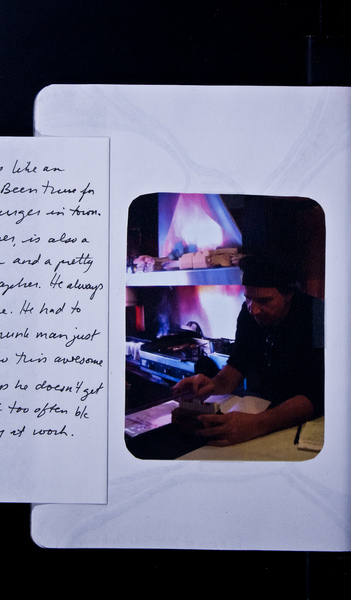 like an
Been true for
in town.
is also a
and a pretty
He always
e. He had to
man just
this awesome
he doesn't get
too often b/c
at work.